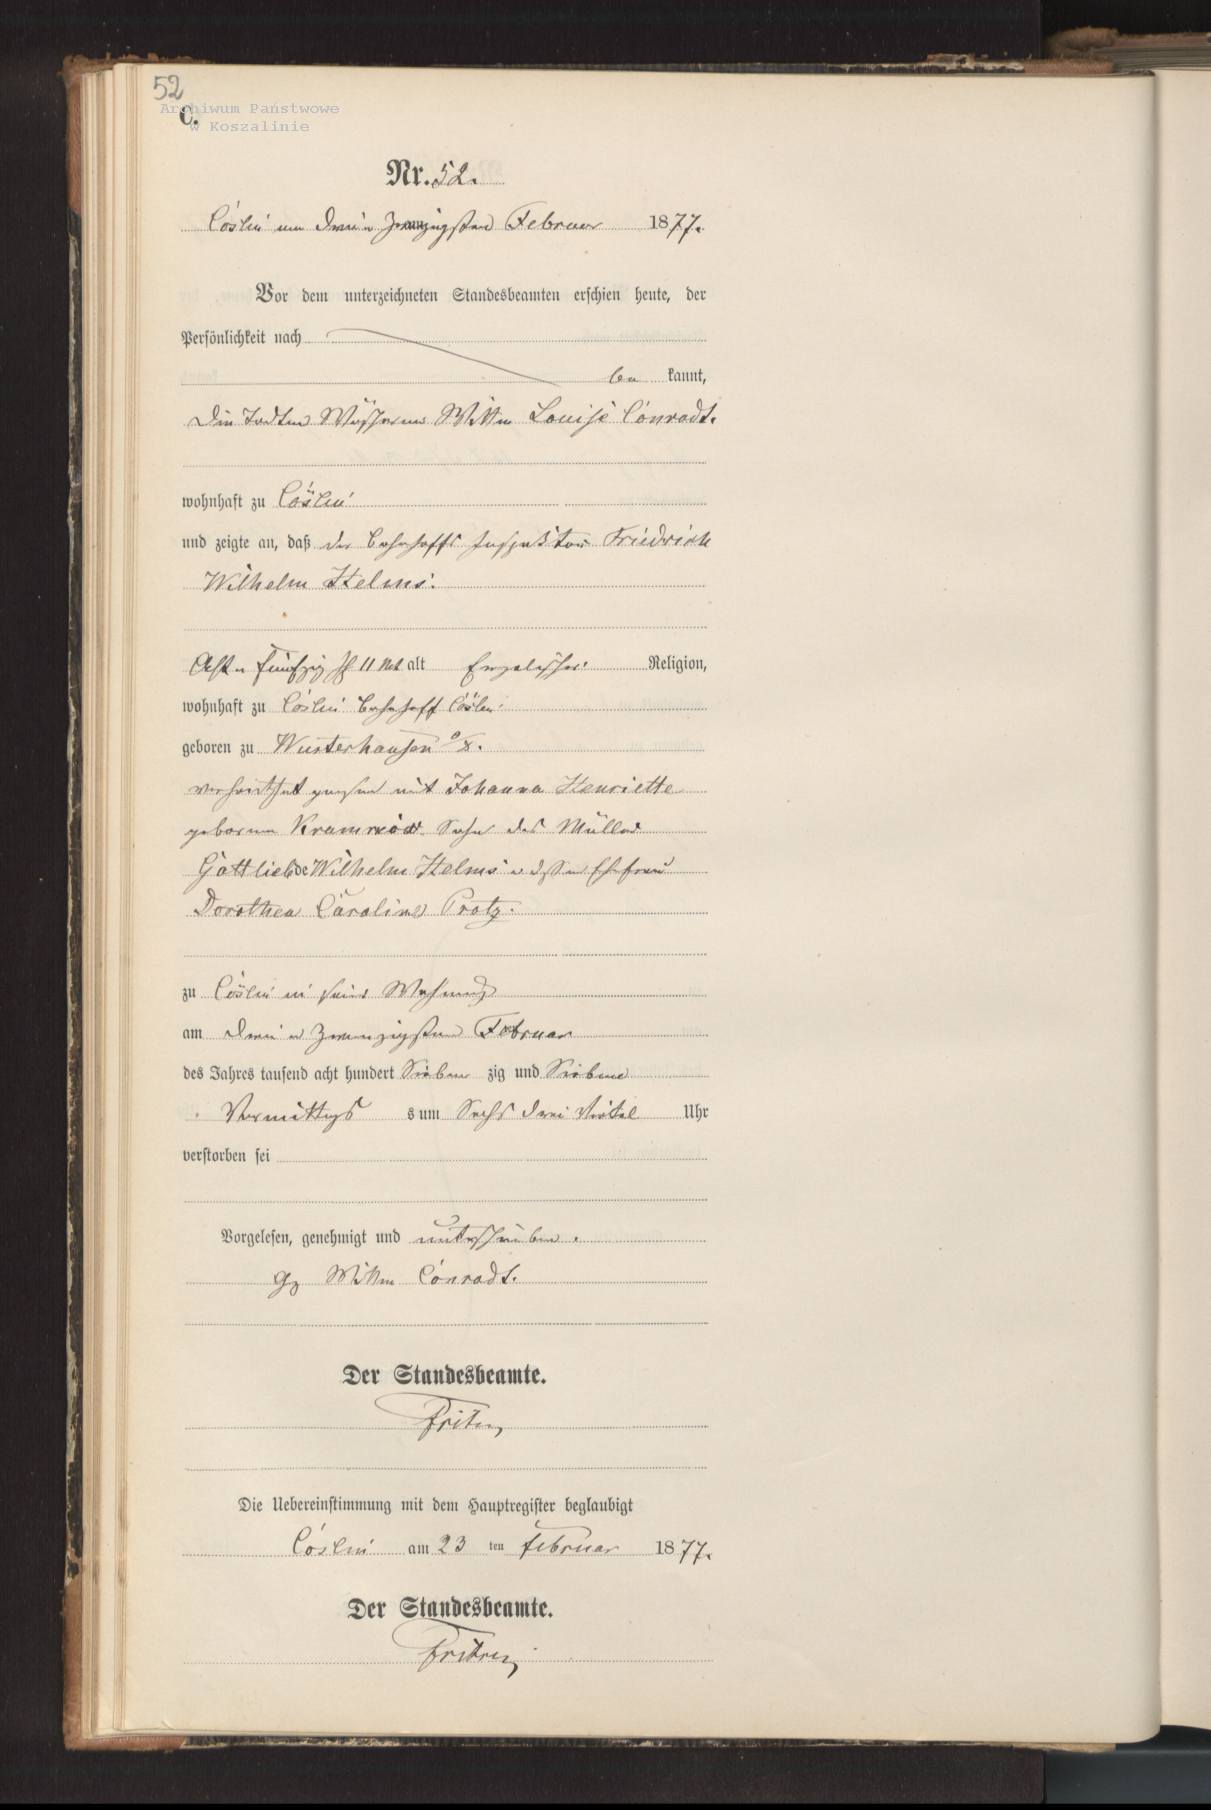 52
Archiwum Państwowe
w Koszalinie
C.
Nr. 52.
Cöslin am drei u zwanzigsten Februar 1877.
Vor dem unterzeichneten Standesbeamten erschien heute, der
Persönlichkeit nach
be kannt,
die Todten Wäscherin Wittwe Louise Conradt.
wohnhaft zu Cöslin
und zeigte an, daß der Bahnhoffs Inspektor Friedrich
Wilhelm Helms.
Acht u fünfzig J 11 Mt alt Evgelischer Religion,
wohnhaft zu Cöslin Bahnhoff Cöslin.
geboren zu Wusterhausen
verheirathet gewesen mit Johanna Henriette
geborene Sohn des Müller
Gottlieb Wilhelm Helms u dessen Ehefrau
Dorothea Caroline Protz.
zu Cöslin in seiner Wohnung
am drei u zwanzigsten Februar
des Jahres tausend acht hundert Sieben zig und Sieben
Vormittags um Sechs drei Viertel Uhr
verstorben sei
Vorgelesen, genehmigt und unterschrieben.
gz Wittwe Conradt.
Der Standesbeamte.
Die Uebereinstimmung mit dem Hauptregister beglaubigt
Cöslin am 23 ten Februar 1877.
Der Standesbeamte.